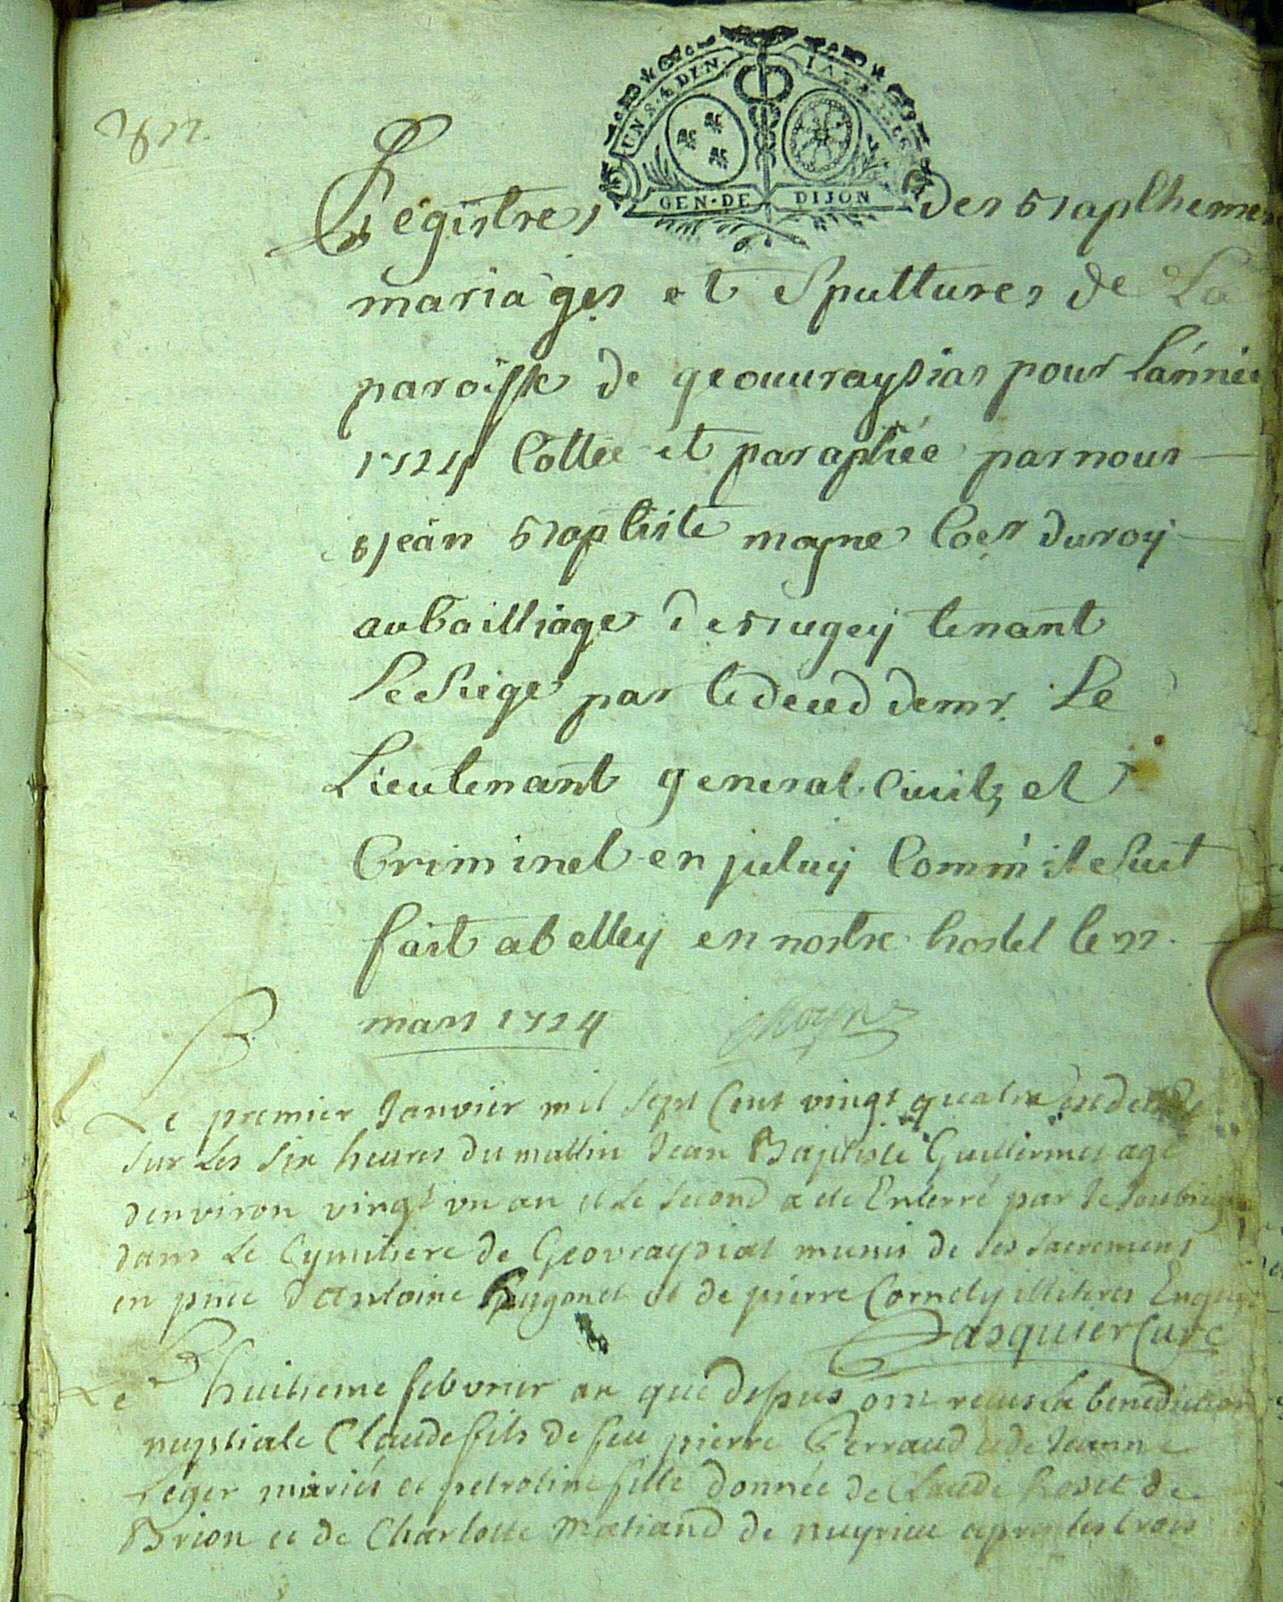 UN S. 4 DEN.
GEN · DE DIJON
Registres des Bapthemes
mariages et Spultures de La
paroisse de geouuraysias pour Lannée
1724 Cottée et paraphée par nous
Jean Baptiste moyne Coer du roy
au bailliage de Bugey tenant
Le Siege par le deced de mr. Le
Lieutenant general Ciuil, et
Criminel en jceluy Comm'il Suit
fait a belley en nostre hostel le
mars 1724 Moyne
Le premier Janvier mil sept Cent vingt quatre est decedé
sur Les six heures du mattin Jean Baptiste Guillermet agé
denviron vingt un an et Le second a ete Enterré par Je soubsigné
dans Le Cymitiere de Geovraysiat munis de ses sacremens
en pnce d'Antoine Hugonet et de pierre Cornety illiteres Enquis
Pasquier Curé
Le huitieme febvrier an que dessus ont receu La benediction
nuptiale Claude fils de feu pierre Perraud et de Jeanne
Leger mariés et petroline fille donnée de Claude Roset de
Brion et de Charlotte de nuyrieu apres les trois